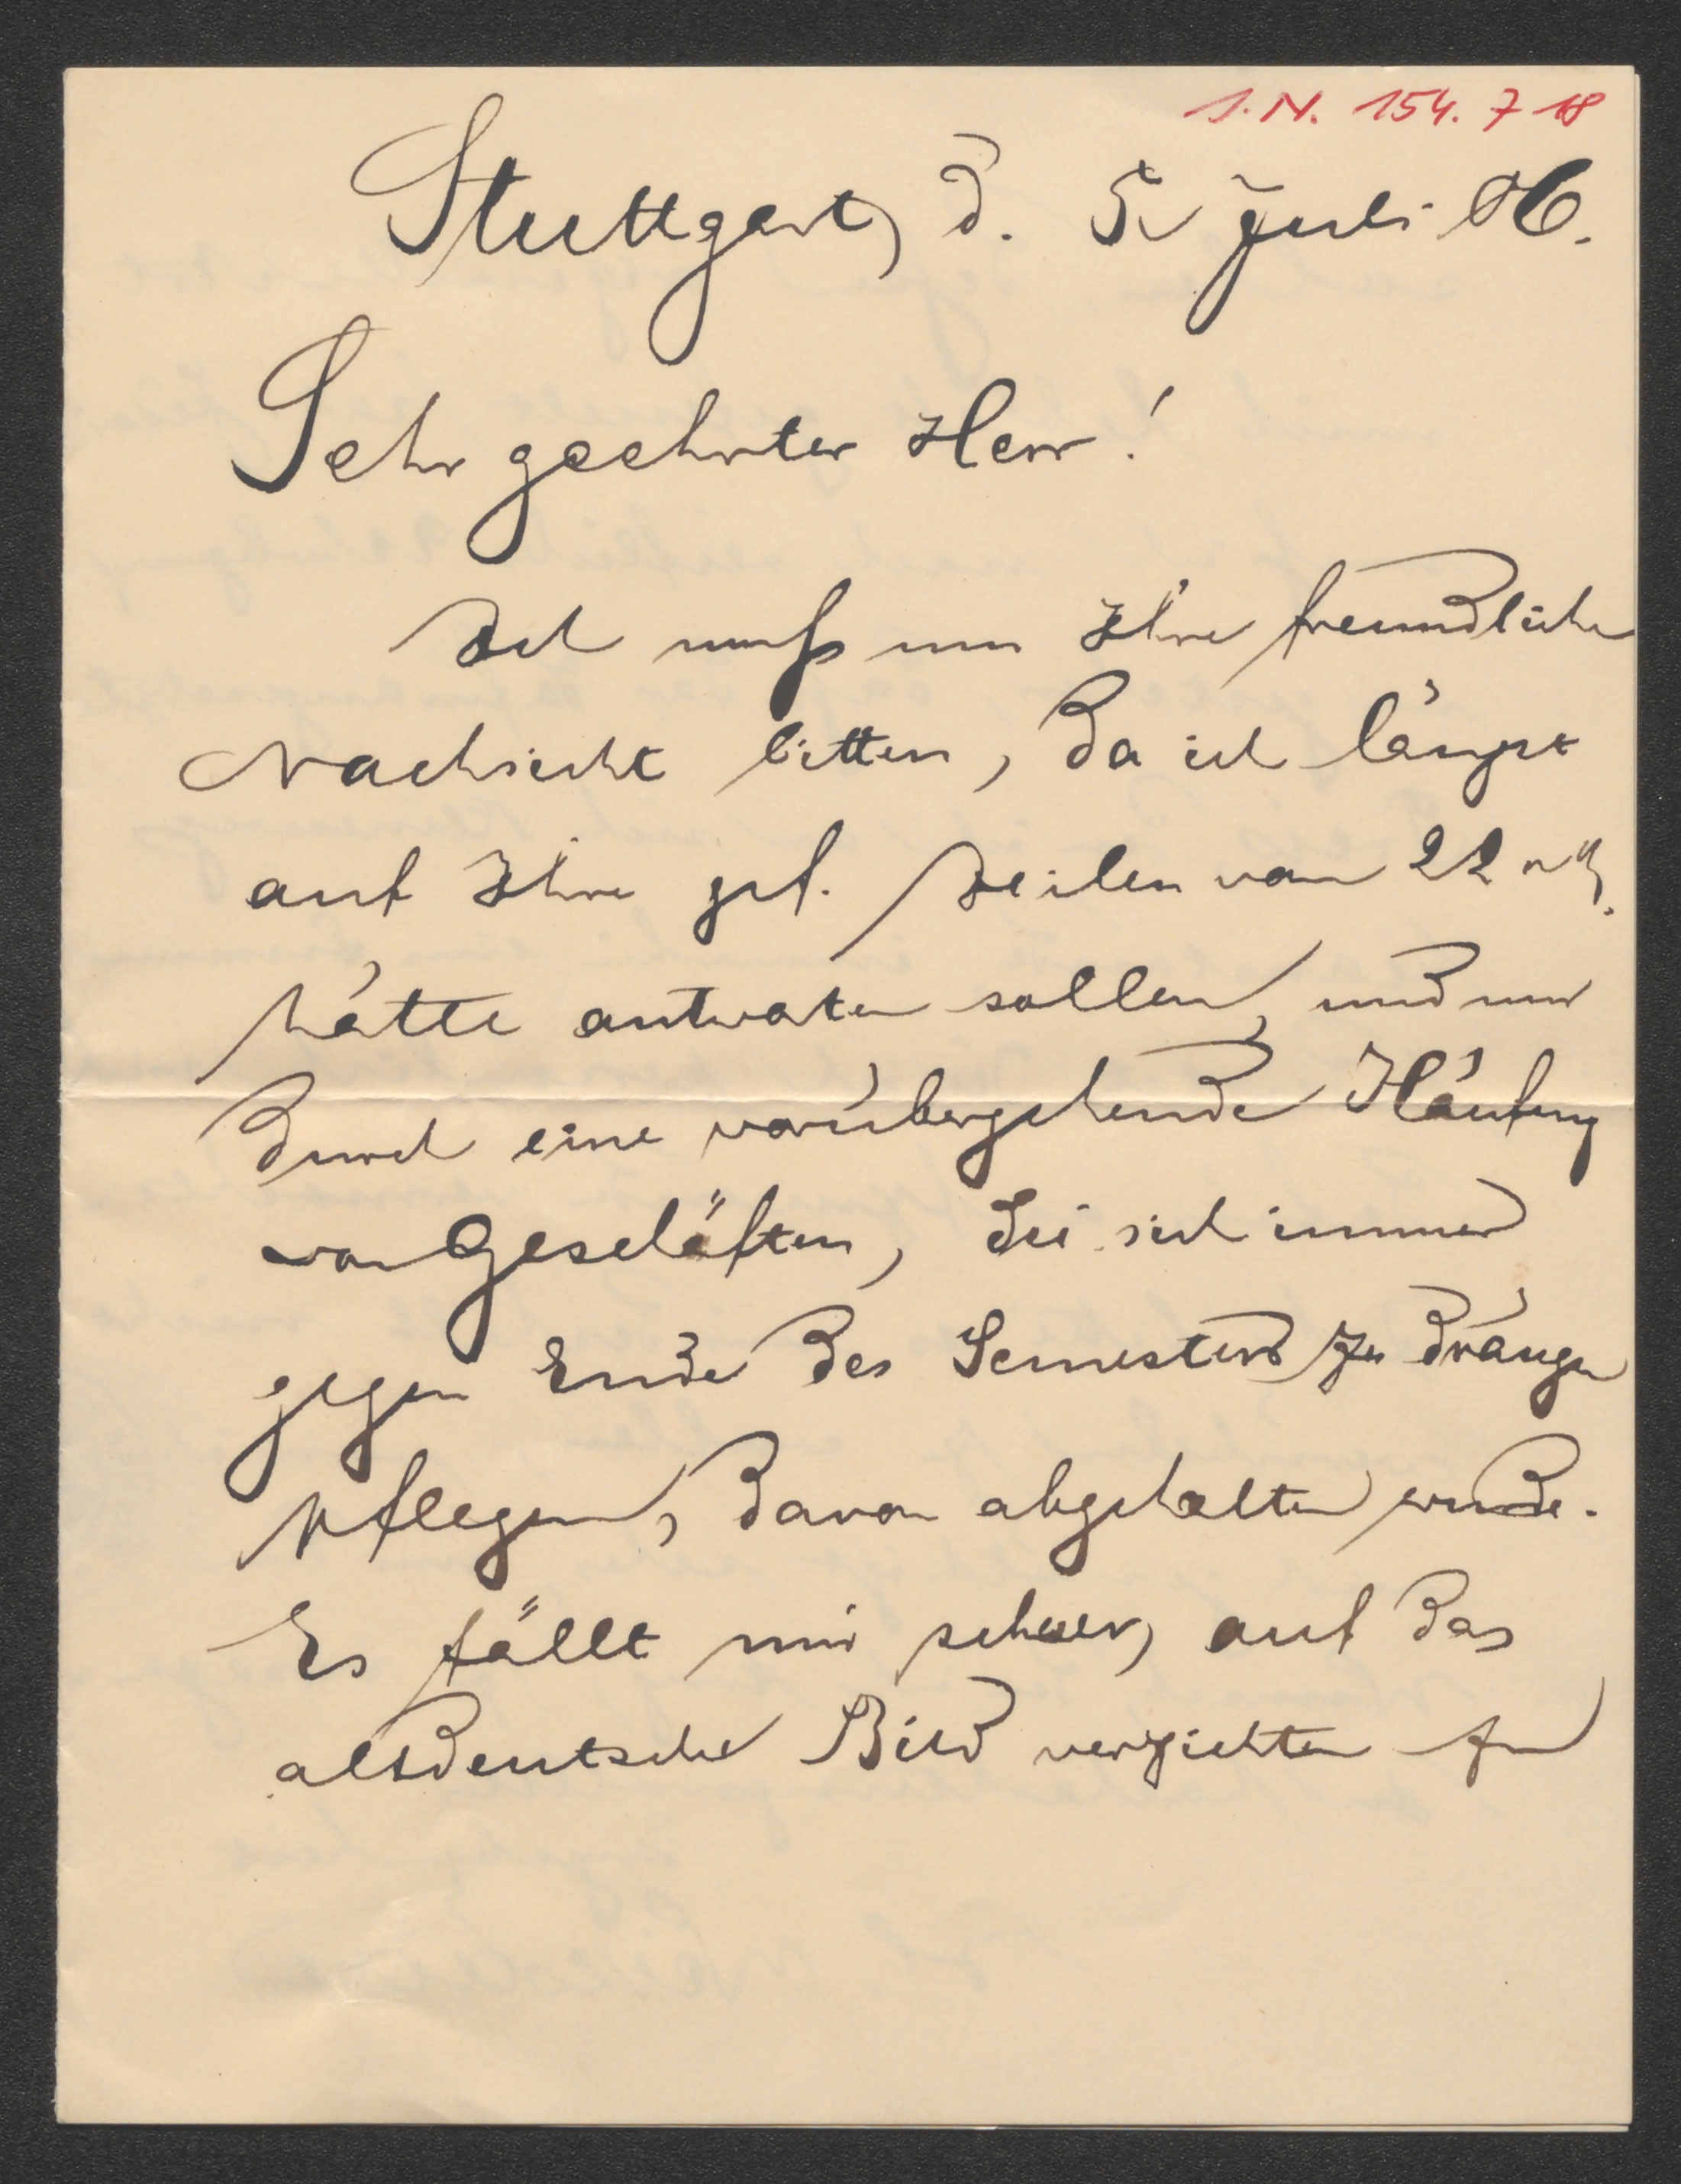 I.N. 154.718
Stuttgart, d. 5. Juli 06.
Sehr geehrter Herr!
Ich muß um Ihre freundliche
Nachsicht bitten, da ich längst
auf Ihre gef. Zeilen vom 22 v. M.
hätte antworten sollen, und nur
durch eine vorübergehende Häufung
von Geschäften, die sich immer
gegen Ende des Semesters zu drängen
pflegen, davon abgehalten wurde.
Es fällt mir schwer, auf das
altdeutsche Bild verzichten zu